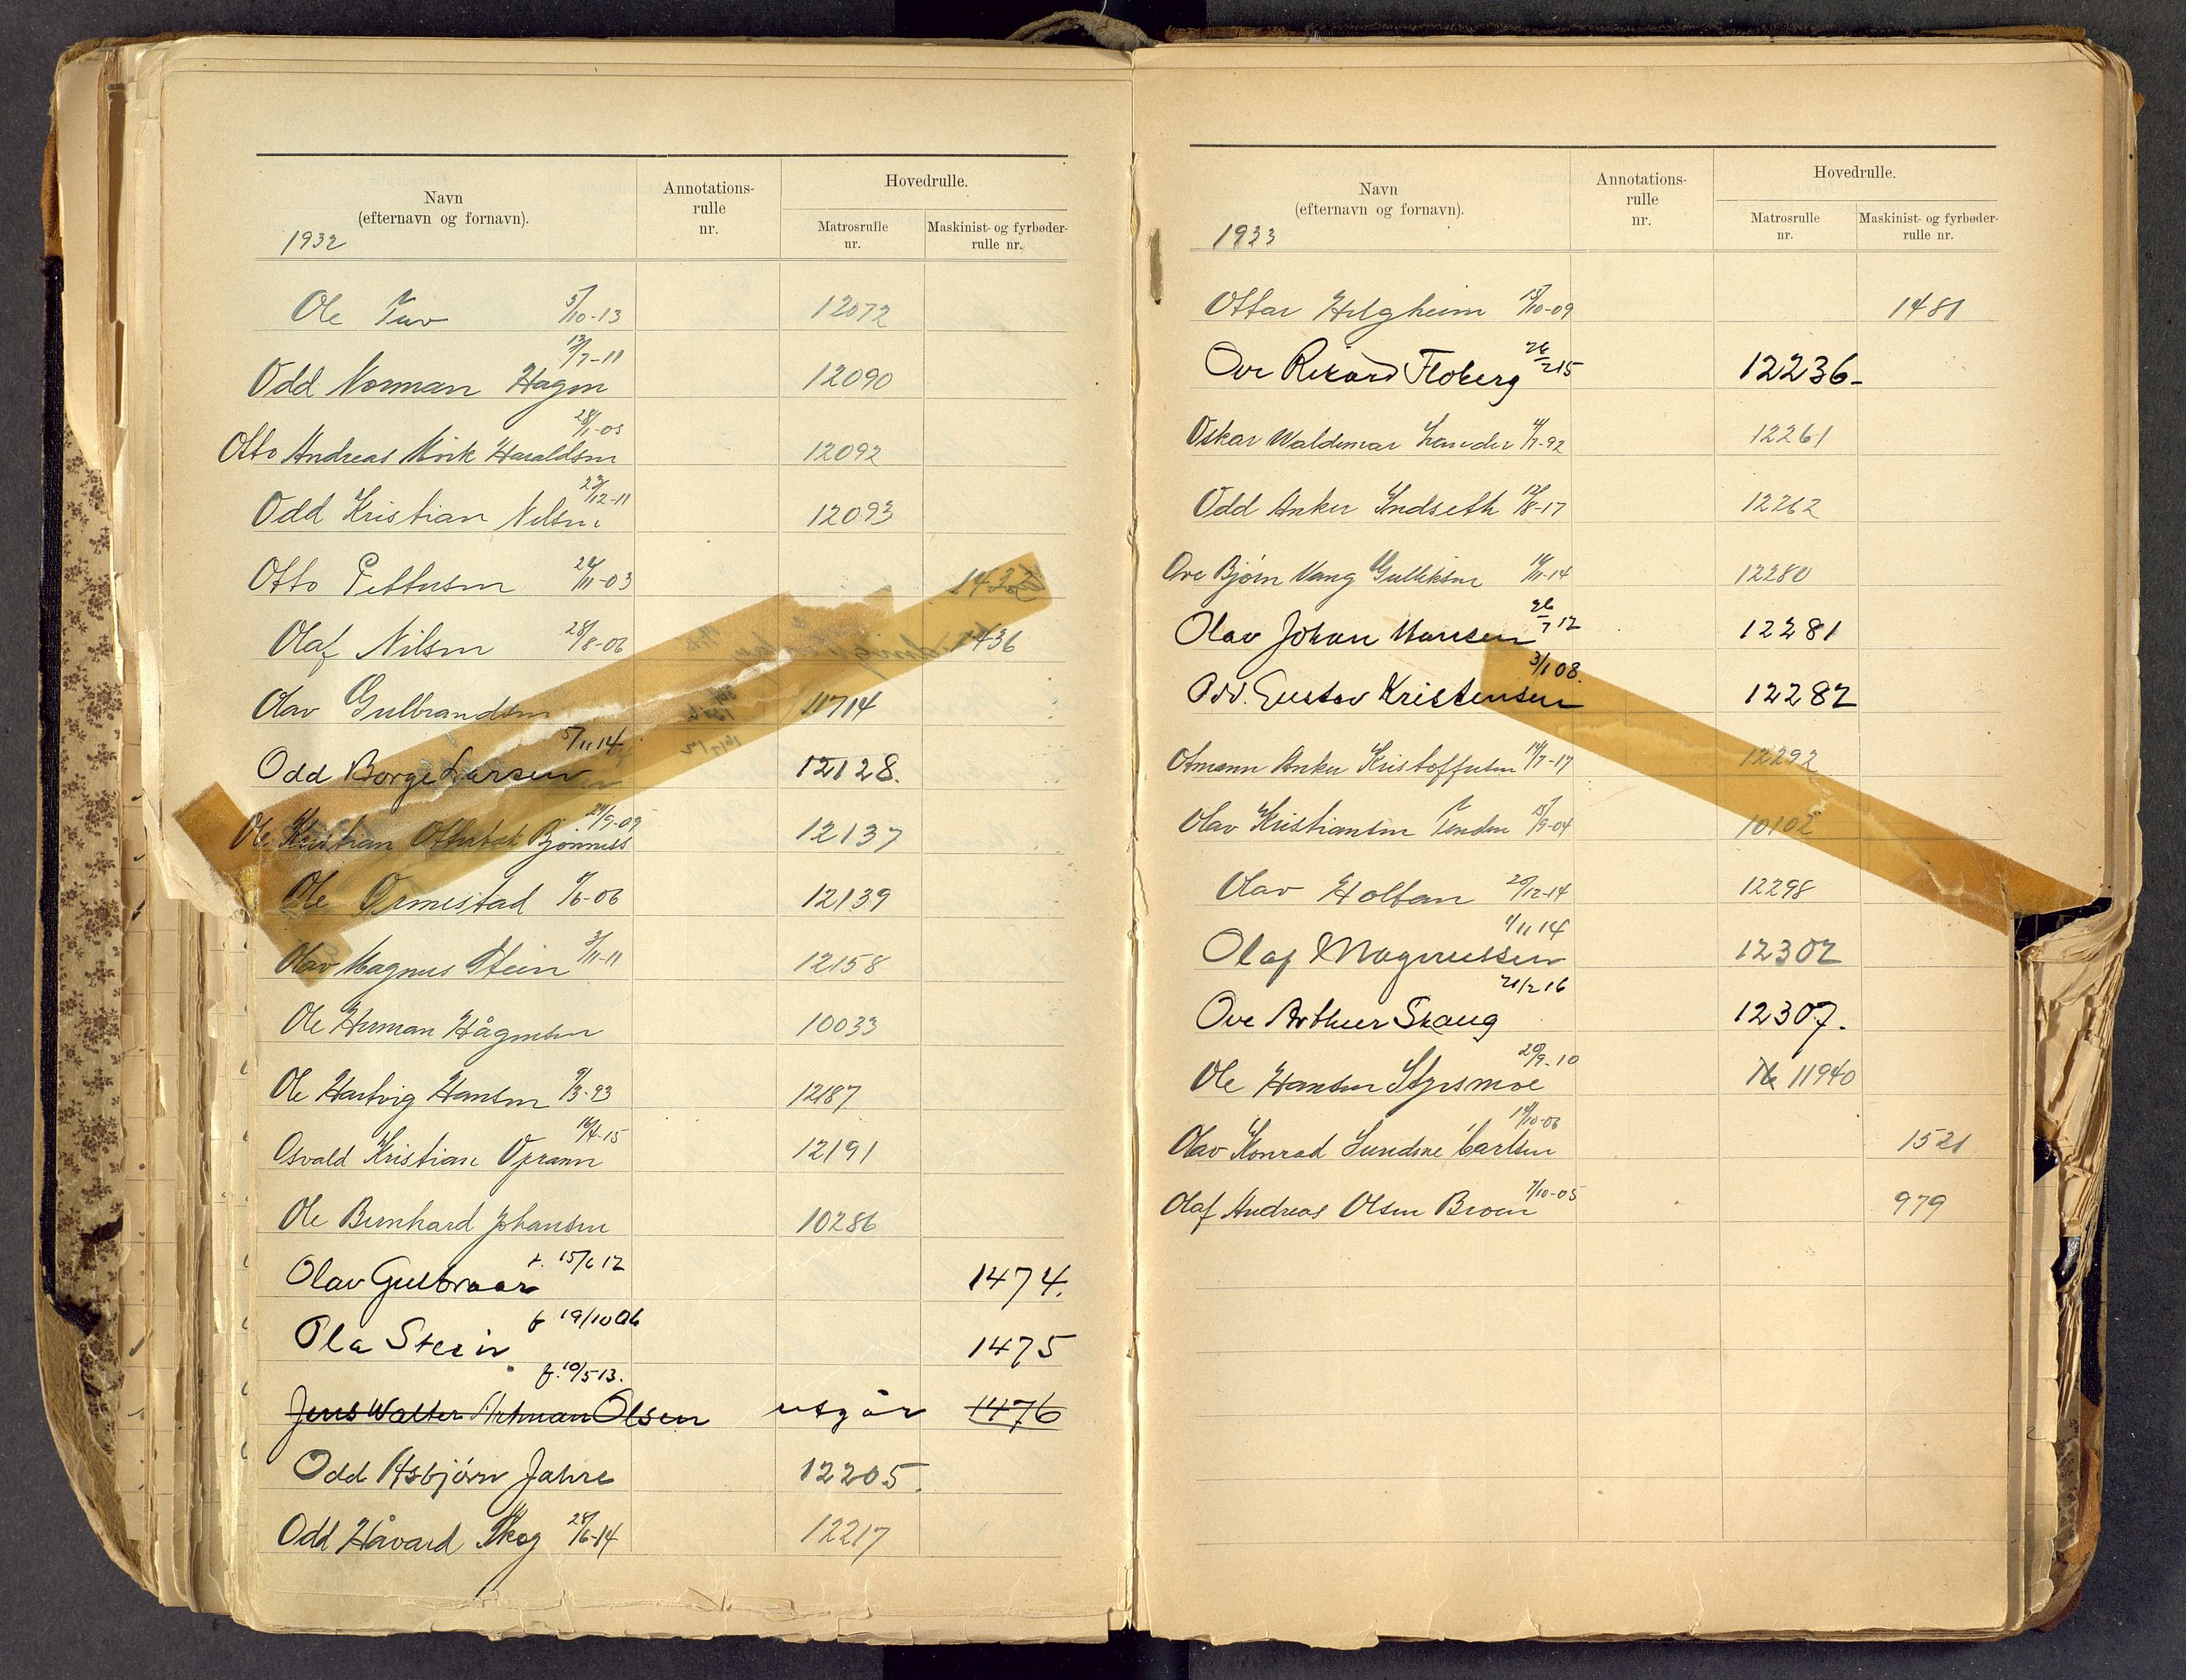 Navn
(efternavn og fornavn).
Annotations-
rulle
nr.
Hovedrulle.
Matrosrulle
nr.
Maskinist- og fyrbøder-
rulle nr.
1932
Ole Tuv 5/10-13 12072
Odd Norman Hagen 13/7-11 12090
Otto Andreas Mørk Haraldsen 28/1-05 12092
Odd Kristian Nilsen 23/12-11 12093
Otto Pettersen 24/11-03
Olaf Nilsen 28/8-06 1436
Olav Gulbrandsen 11714
Odd Borge Larsen 5/11 14 12128.
Ole Kristian Bjønness 29/9-09 12137
Ole Ormestad 9/6-06 12139
Olav Magnus Stein 3/11-11 12158
Ole Herman Hågensen 10033
Ole Hartvig Hansen 9/3-93 12187
Osvald Kristian Oprann 16/4-15 12191
Ole Bernhard Johansen 10286
Olav Gulbraar f. 15/6 12 1474.
Ola Stein f 19/10 06 1475
Jens Walter Artman Olsen f. 10/5 13. utgår 1476
Odd Asbjørn Jahre 12205.
Odd Håvard Skog 28/6-14 12217
Navn
(efternavn og fornavn).
Annotations-
rulle
nr.
Hovedrulle.
Matrosrulle
nr.
Maskinist- og fyrbøder-
rulle nr.
1933
Ottar Helgheim 18/10-09 1481
Ove Rikard Floberg 26/2 15 12236-
Oskar Waldemar 4/7-92 12261
Odd Anker Indseth 12/8-17 12262
Ove Bjørn Vang Gulliksen 14/11-14 12280
Olav Johan Hansen 26/7 12 12281
Odd. Gustav Kristensen 3/1 08. 12282
Otmann Anker Kristoffersen 14/7-17 12292
Olav Kristiansen Tenden 15/9-04 10102
Olav Holtan 20/12-14 12298
Olaf Magnussen 1/11 14 12302
Ove Arthur Skaug 21/2 16 12307.
Ole Hansen Styrsmoe 20/9-10 11940
Olav Konrad Sundene Carlsen 18/10-06 1521
Olaf Andreas Olsen Broen 7/10-05 979